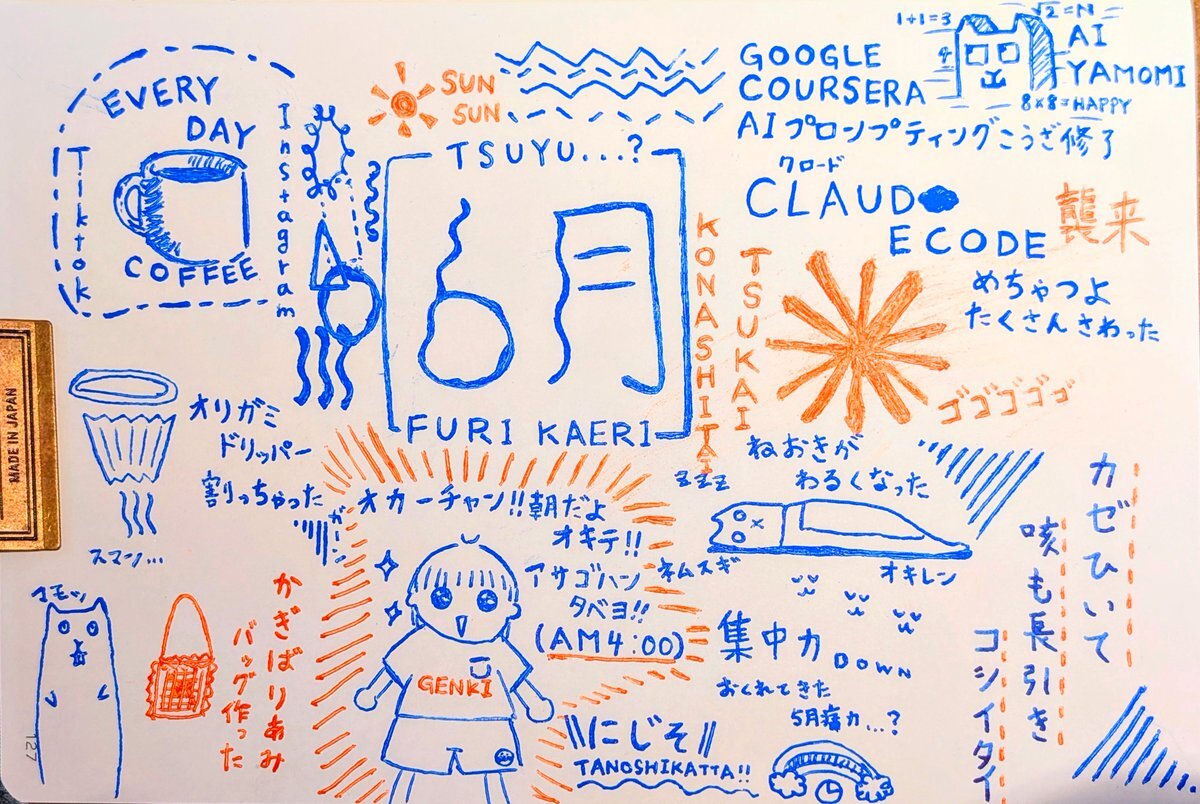 EVERY
DAY
COFFEE
Tiktok
Instagram
SUN
SUN
GOOGLE
COURSERA
AIプロンプティングこうざ修了
1+1=3
√2=N
AI
YAMOMI
8×8=HAPPY
クロード
CLAUD
ECODE
襲来
めちゃつよ
たくさんさわった
ゴゴゴゴゴ
TSUYU...?
6月
FURI KAERI
KONASHITAI
TSUKAI
MADE IN JAPAN
オリガミ
ドリッパー
割っちゃった
スマン...
オカーチャン!!朝だよ
オキテ!!
アサゴハン
タベヨ!!
(AM4:00)
GENKI
zzz
ねおきが
わるくなった
ネムスギ
オキレン
カゼひいて
咳も長引き
コシイタイ
集中力
DOWN
おくれてきた
5月病カ...?
\\にじそ//
TANOSHIKATTA!!
マモッ
かぎばりあみ
バッグ作った
127